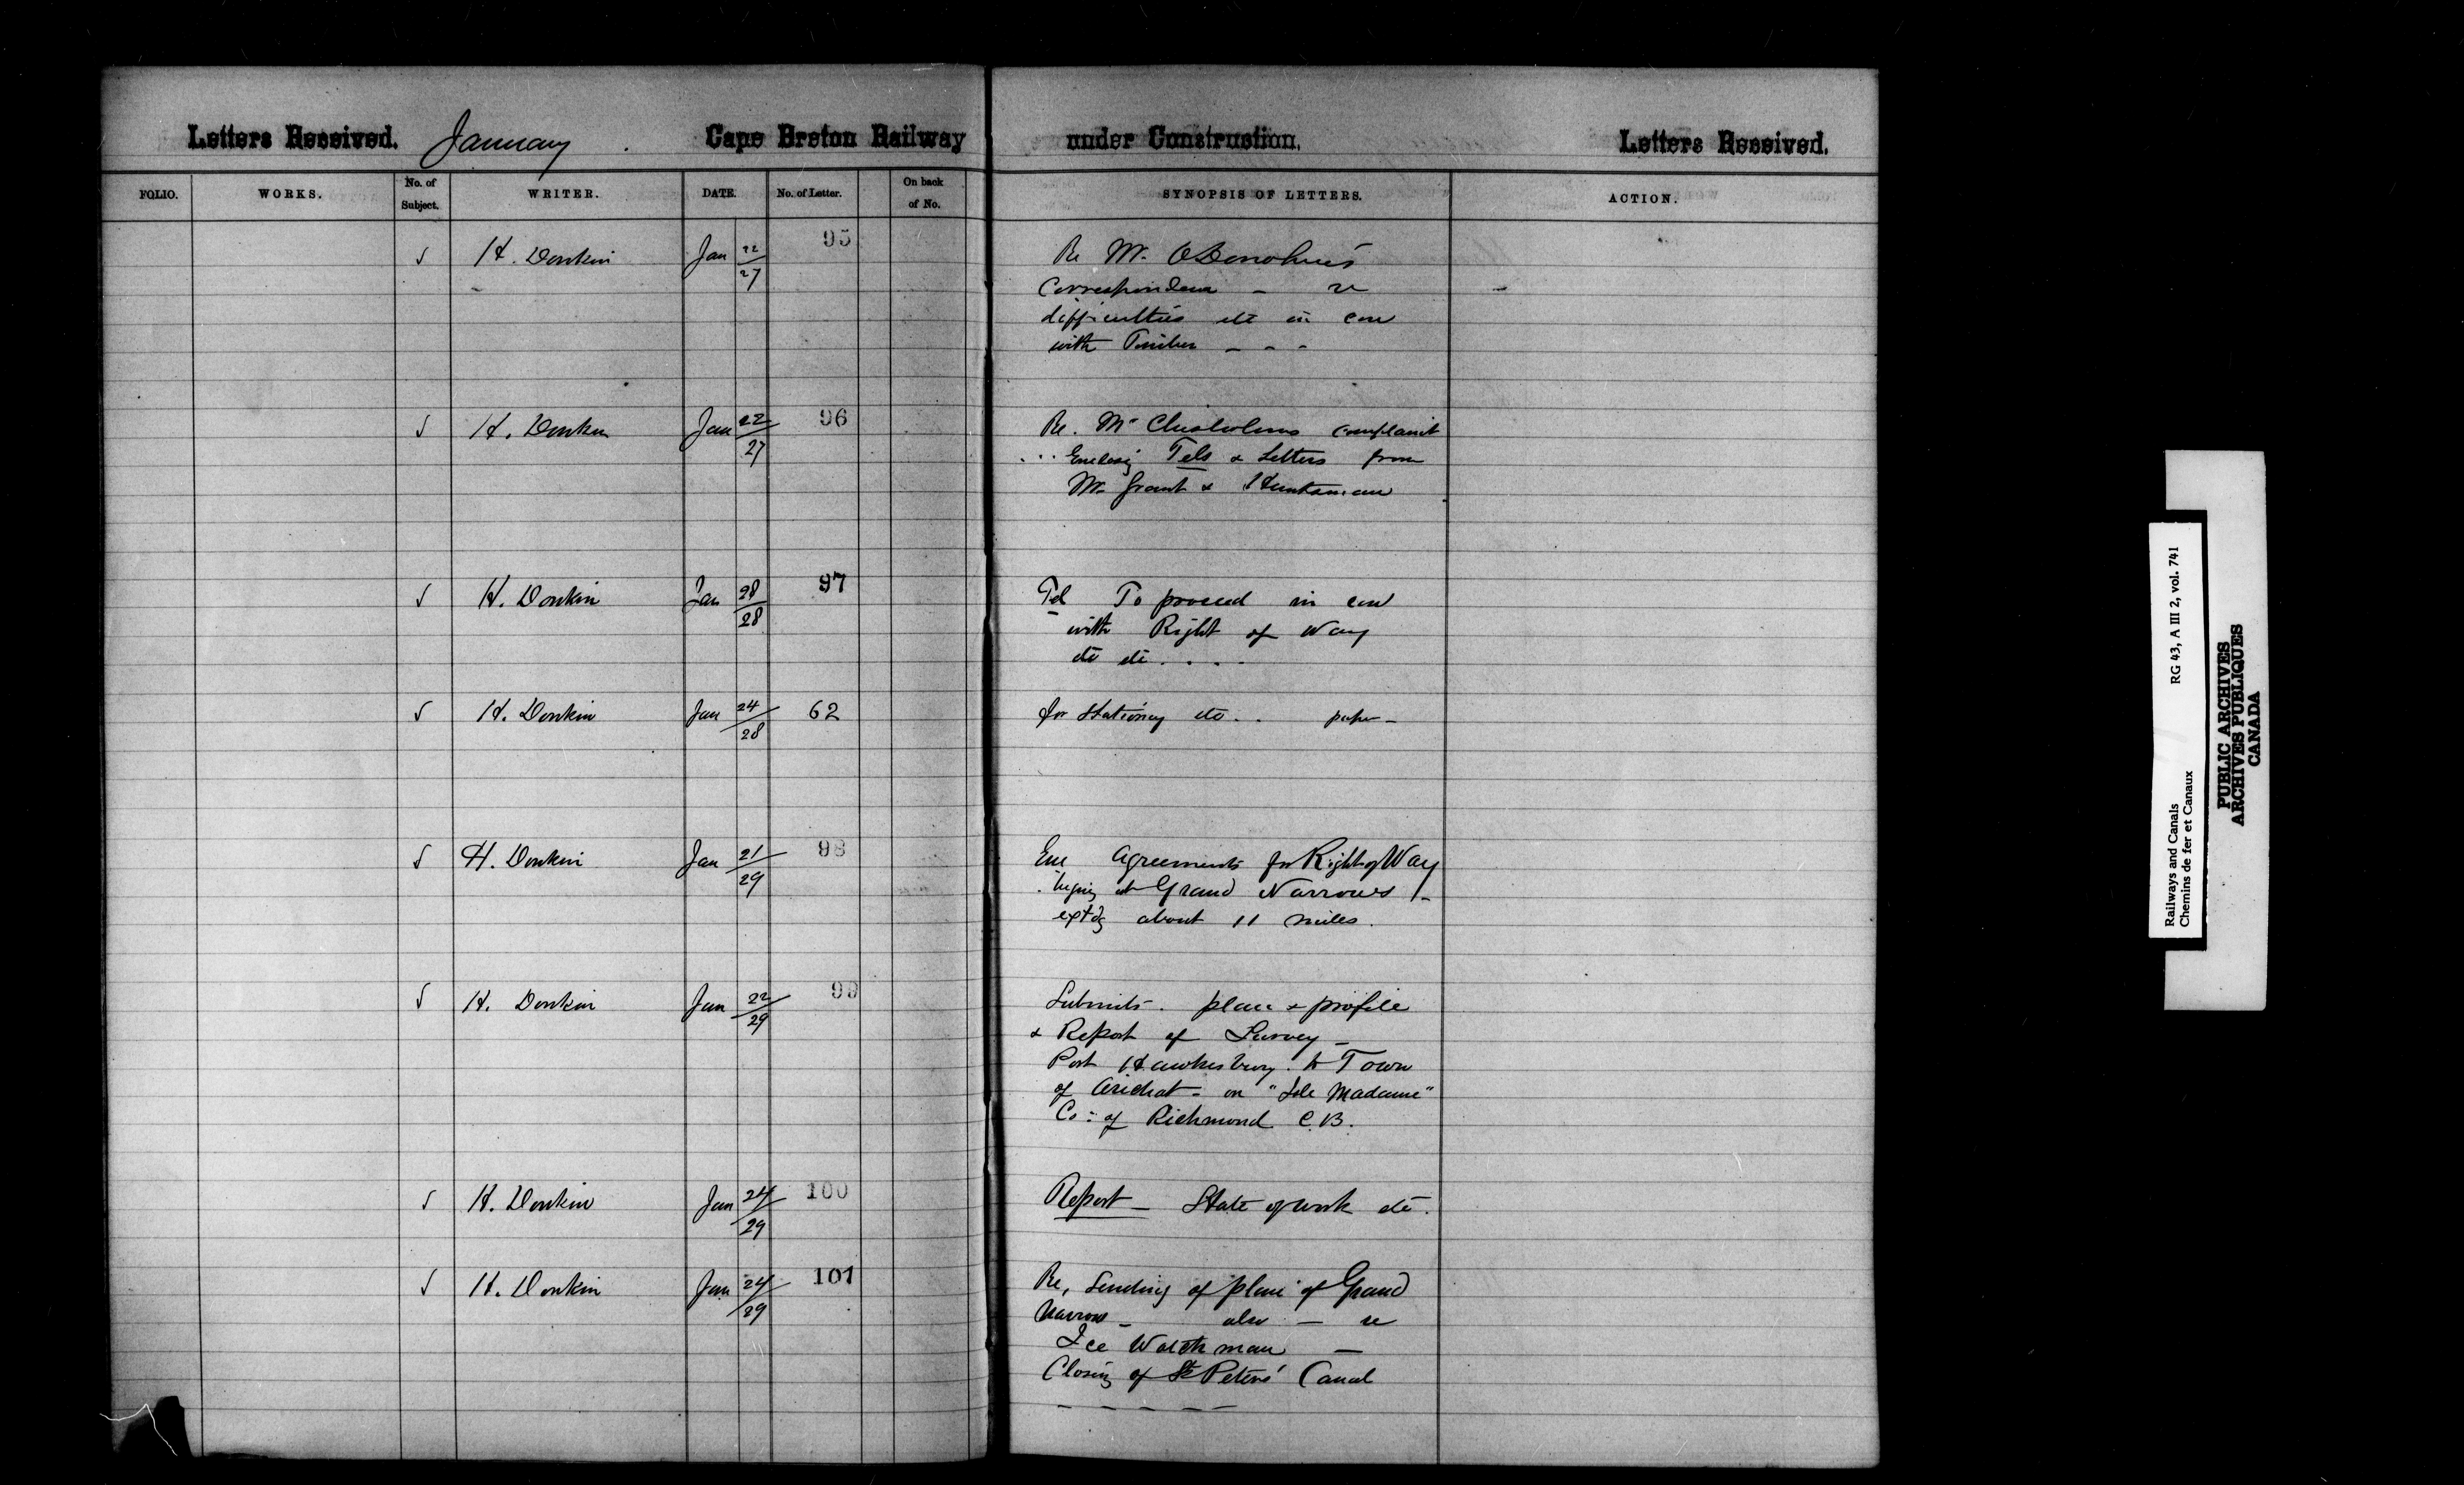 Letters Received. January Cape Breton Railway under Construction. Letters Received.
FOLIO. WORKS. No. of Subject. WRITER. DATE. No. of Letter. On back of No. SYNOPSIS OF LETTERS. ACTION.
H. Donkin Jan 22/27 95 Re Mr. O'Donohue's
Correspondence – re
difficulties etc in con
with Timber – – –
H. Donkin Jan 22/27 96 Re. Mr Chisholms complaint
... Enclosig Tels & Letters from
Mr. Grant & Huntsman
H. Donkin Jan 28/28 97 Tel To proceed in con
with Right of Way
etc etc . . . .
H. Donkin Jan 24/28 62 for Stationery etc . . paper –
H. Donkin Jan 21/29 98 Enc Agreements for Right of Way
at Grand Narrows
extdg about 11 miles.
H. Donkin Jan 22/29 99 Submits – plan & profile
& Report of Survey –
Port Hawkesbury to Town
of Arichat – on "Isle Madame"
Co: of Richmond C.B.
H. Donkin Jan 24/29 100 Report – State of work etc.
H. Donkin Jan 24/29 101 Re, Sending of plan of Grand
Narrows – also – re
Ice Watchman –
Closing of St Peters' Canal
– – – – –
Railways and Canals RG 43, A III 2, vol. 741
Chemins de fer et Canaux
PUBLIC ARCHIVES
ARCHIVES PUBLIQUES
CANADA